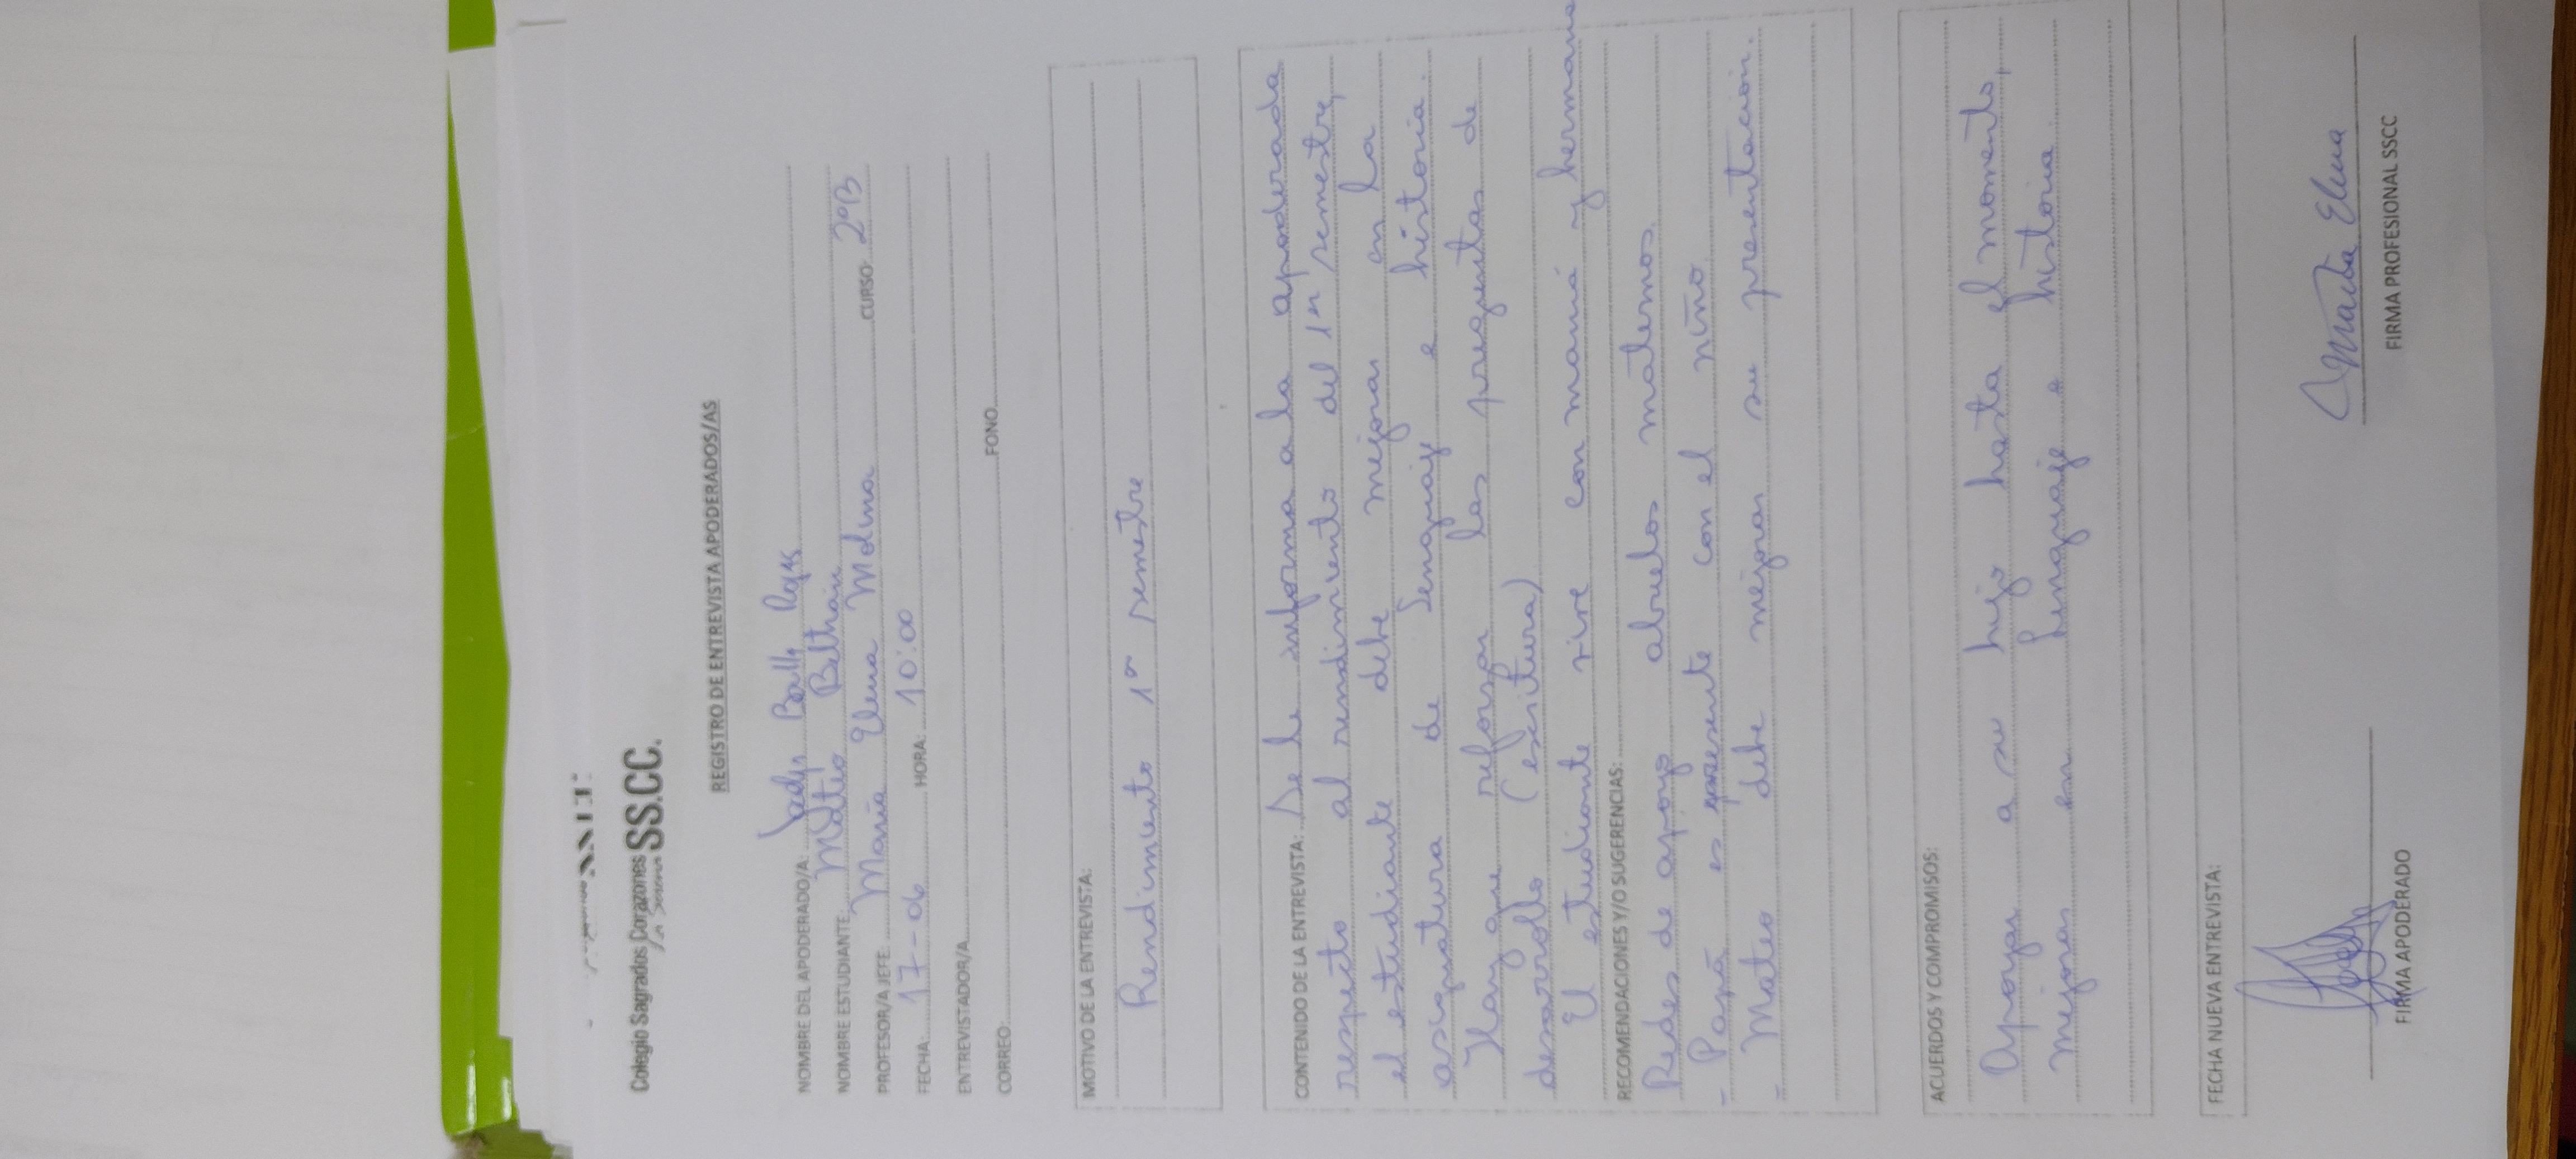 Colegio Sagrados Corazones SS.CC.
La Serena
REGISTRO DE ENTREVISTA APODERADOS/AS
NOMBRE DEL APODERADO/A: Rojas
NOMBRE ESTUDIANTE: Mateo Beltrán
PROFESOR/A JEFE: María Elena Molina CURSO: 2ºB
FECHA: 17-06 HORA: 10:00
ENTREVISTADOR/A
CORREO: FONO
MOTIVO DE LA ENTREVISTA:
Rendimiento 1er semestre
CONTENIDO DE LA ENTREVISTA: Se le informa a la apoderada
respecto al rendimiento del 1er semestre,
el estudiante debe mejorar en la
asignatura de Lenguaje e historia.
Hay que reforzar las preguntas de
desarrollo (escritura)
El estudiante vive con mamá y hermano
RECOMENDACIONES Y/O SUGERENCIAS:
Redes de apoyo abuelos maternos.
- Papá es presente con el niño.
- Mateo debe mejorar su presentación.
ACUERDOS Y COMPROMISOS:
Apoyar a su hijo hasta el momento,
mejorar en lenguaje e historia.
FECHA NUEVA ENTREVISTA:
María Elena
FIRMA APODERADO FIRMA PROFESIONAL SSCC